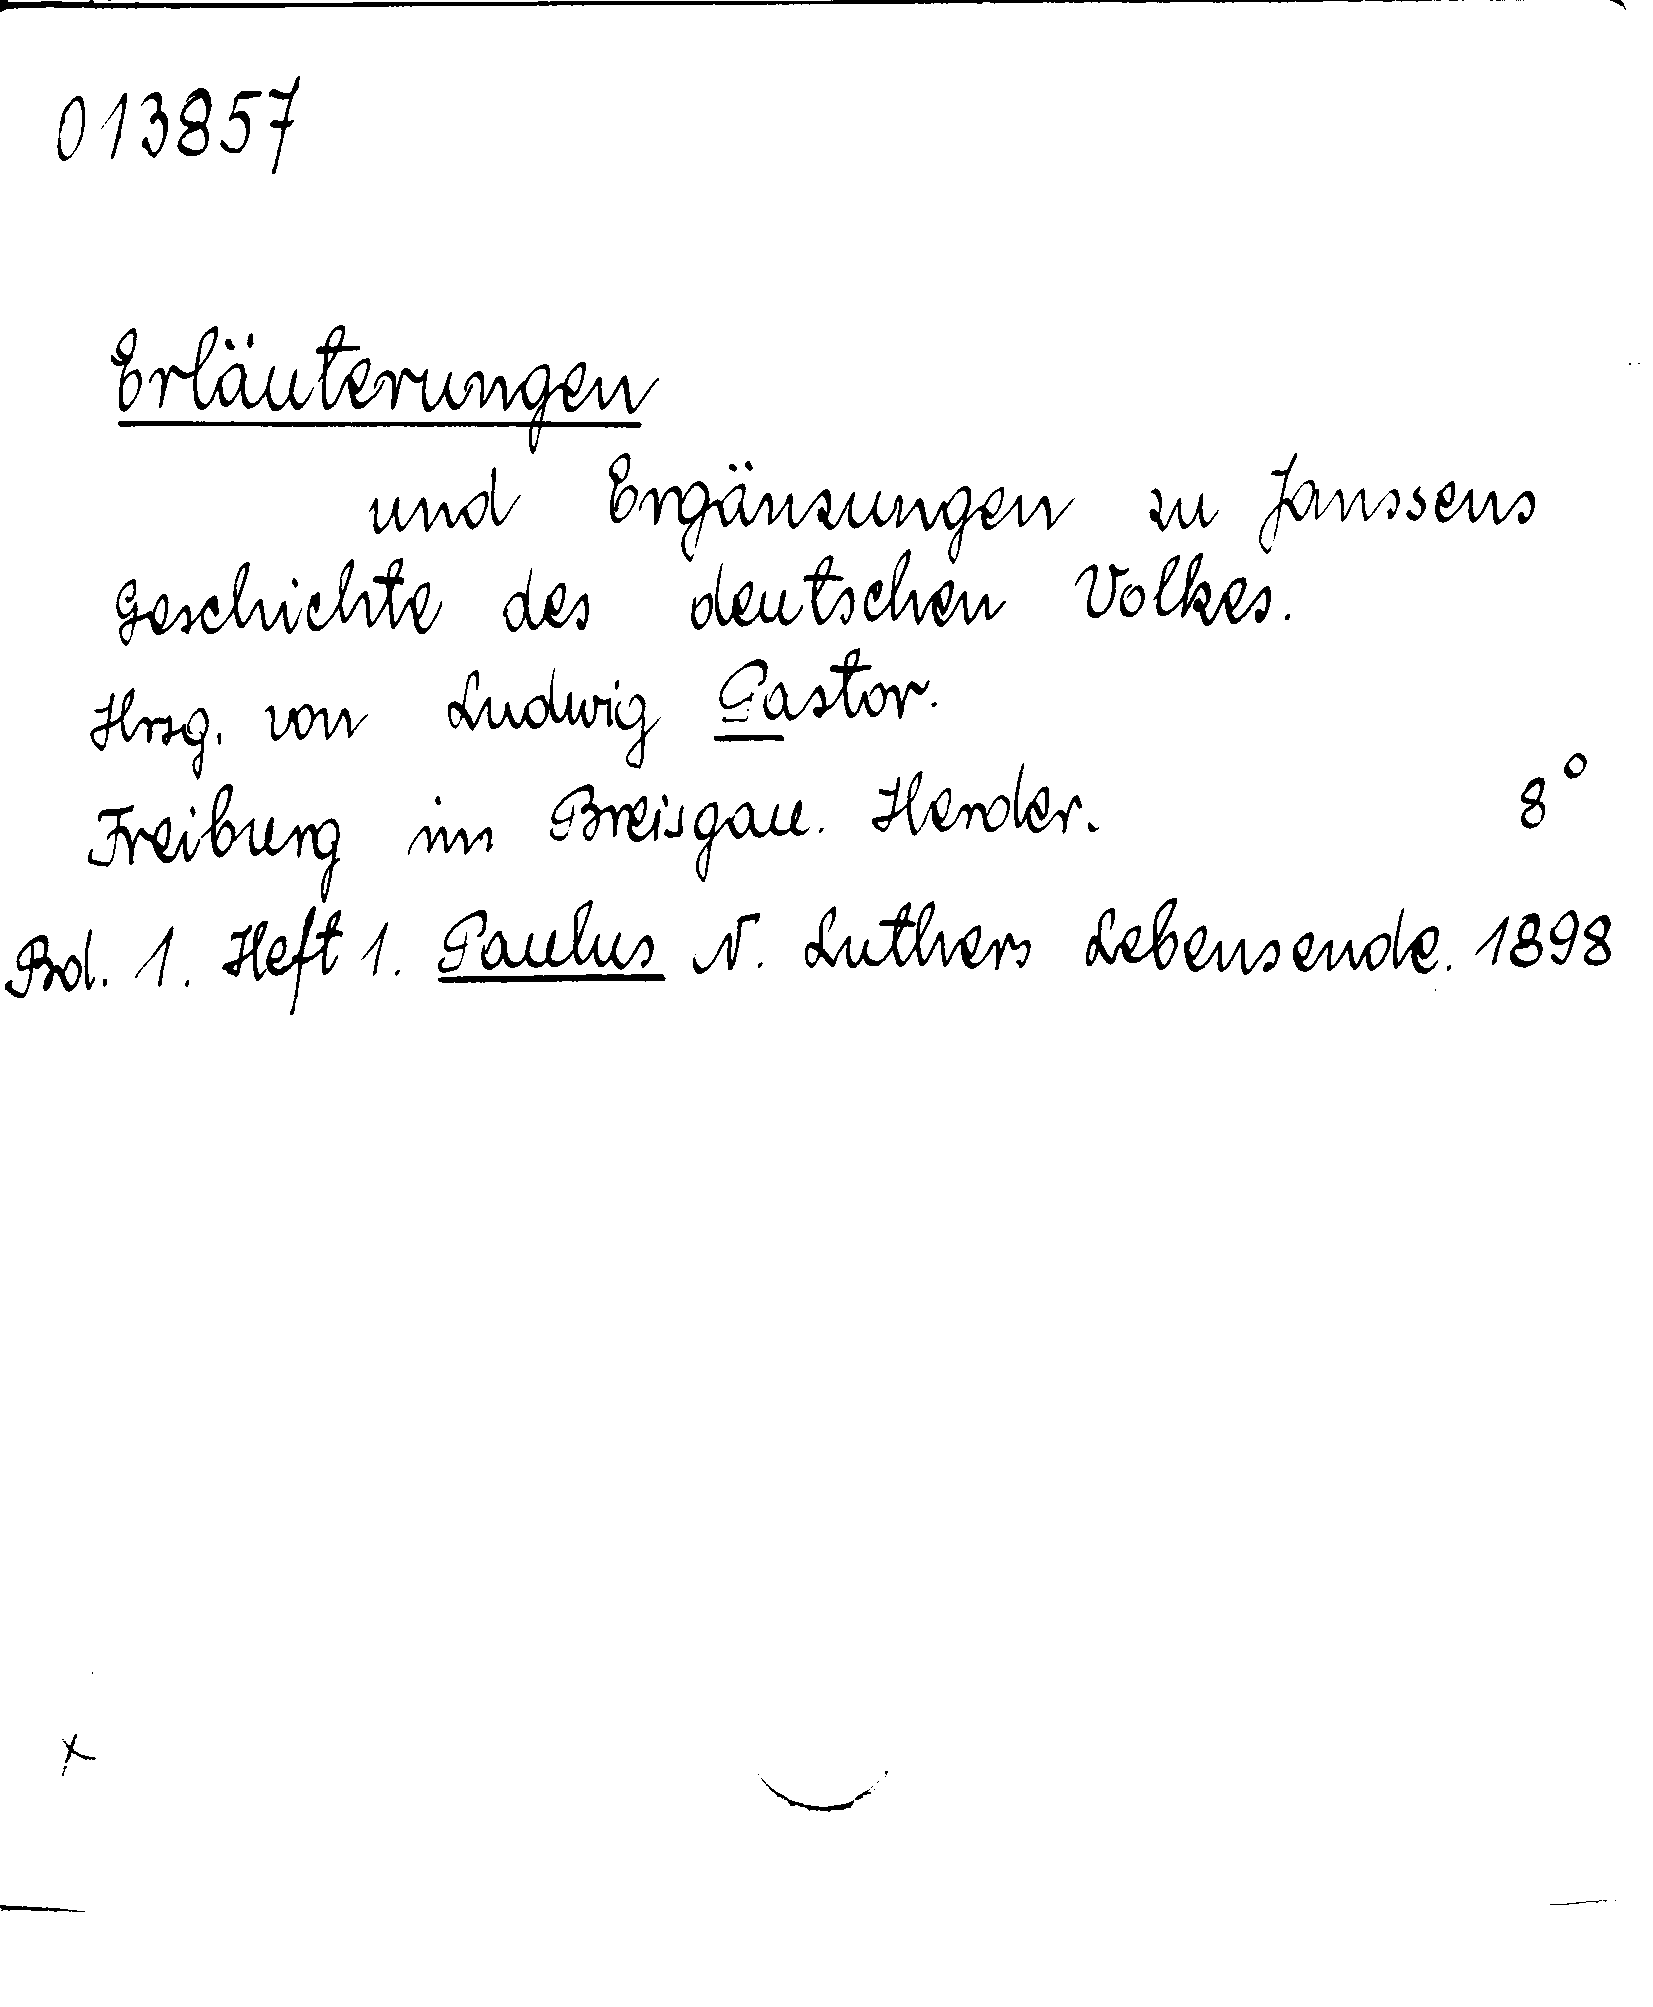 013857
Erläuterungen
und Ergänzungen zu Janssens
Geschichte des deutschen Volkes.
Hrsg. von Ludwig Pastor.
Freiburg im Breisgau. Herder. 8°
Bd. 1. Heft 1. Paulus N. Luthers Lebensende. 1898
x